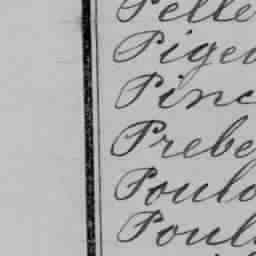 Pelle
Pigeo
Pinc
Prebe
Poulo
Poul